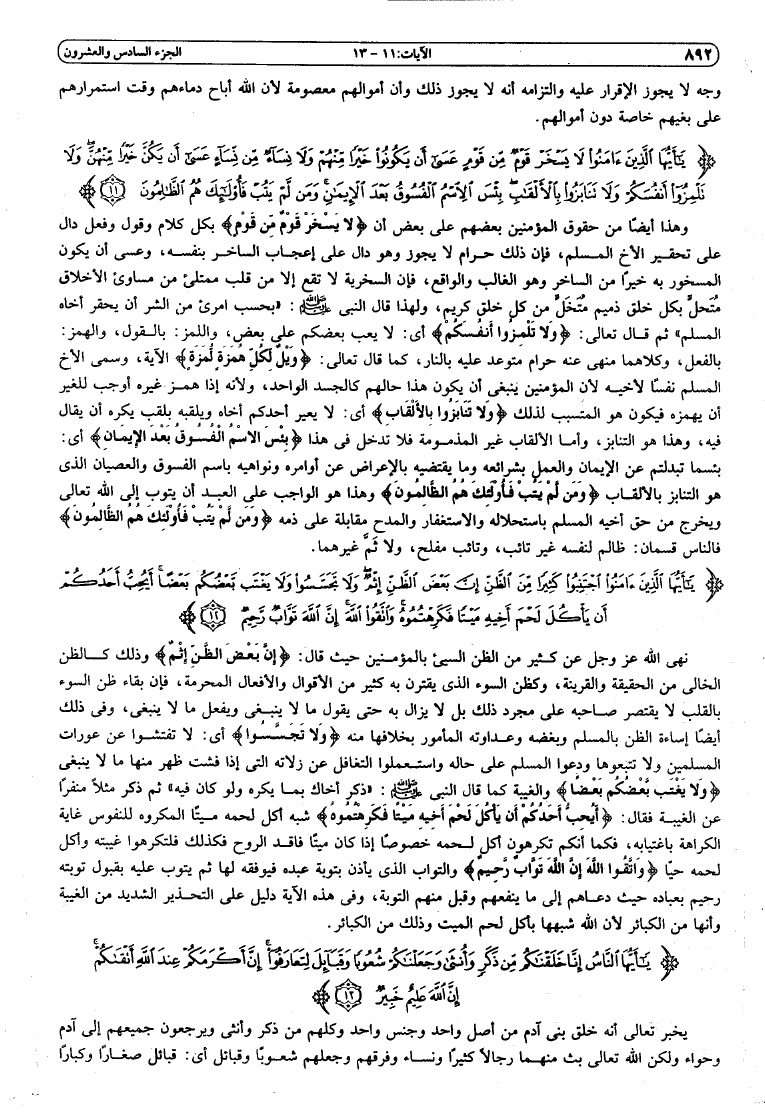 ٨٩٢ الآيات: ١١ - ١٣ الجزء السادس والعشرون
وجه لا يجوز الإقرار عليه والتزامه أنه لا يجوز ذلك وأن أموالهم معصومة لأن الله أباح دماءهم وقت استمرارهم
على بغيهم خاصة دون أموالهم.
﴿ يَـٰٓأَيُّهَا ٱلَّذِينَ ءَامَنُوا۟ لَا يَسْخَرْ قَوْمٌ مِّن قَوْمٍ عَسَىٰٓ أَن يَكُونُوا۟ خَيْرًا مِّنْهُمْ وَلَا نِسَآءٌ مِّن نِّسَآءٍ عَسَىٰٓ أَن يَكُنَّ خَيْرًا مِّنْهُنَّ ۖ وَلَا
تَلْمِزُوٓا۟ أَنفُسَكُمْ وَلَا تَنَابَزُوا۟ بِٱلْأَلْقَـٰبِ ۖ بِئْسَ ٱلِٱسْمُ ٱلْفُسُوقُ بَعْدَ ٱلْإِيمَـٰنِ ۚ وَمَن لَّمْ يَتُبْ فَأُو۟لَـٰٓئِكَ هُمُ ٱلظَّـٰلِمُونَ ١١ ﴾
وهذا أيضًا من حقوق المؤمنين بعضهم على بعض أن ﴿لا يَسْخَرْ قَوْمٌ مِّن قَوْمٍ﴾ بكل كلام وقول وفعل دال
على تحقير الأخ المسلم، فإن ذلك حرام لا يجوز وهو دال على إعجاب الساخر بنفسه، وعسى أن يكون
المسخور به خيرًا من الساخر وهو الغالب والواقع، فإن السخرية لا تقع إلا من قلب ممتلئ من مساوئ الأخلاق
مُتَحلٍّ بكل خلق ذميم مُتَخَلٍّ من كل خلق كريم، ولهذا قال النبى ﷺ: «بحسب امرئ من الشر أن يحقر أخاه
المسلم» ثم قال تعالى: ﴿وَلا تَلْمِزُوا أَنفُسَكُمْ﴾ أى: لا يعب بعضكم على بعض، واللمز: بالقول، والهمز:
بالفعل، وكلاهما منهى عنه حرام متوعد عليه بالنار، كما قال تعالى: ﴿وَيْلٌ لِّكُلِّ هُمَزَةٍ لُّمَزَةٍ﴾ الآية، وسمى الأخ
المسلم نفسًا لأخيه لأن المؤمنين ينبغى أن يكون هذا حالهم كالجسد الواحد، ولأنه إذا همز غيره أوجب للغير
أن يهمزه فيكون هو المتسبب لذلك ﴿وَلا تَنَابَزُوا بِالأَلْقَابِ﴾ أى: لا يعير أحدكم أخاه ويلقبه بلقب يكره أن يقال
فيه، وهذا هو التنابز، وأما الألقاب غير المذمومة فلا تدخل فى هذا ﴿بِئْسَ الاسْمُ الْفُسُوقُ بَعْدَ الإِيمَانِ﴾ أى:
بئسما تبدلتم عن الإيمان والعمل بشرائعه وما يقتضيه بالإعراض عن أوامره ونواهيه باسم الفسوق والعصيان الذى
هو التنابز بالألقاب ﴿وَمَن لَّمْ يَتُبْ فَأُوْلَئِكَ هُمُ الظَّالِمُونَ﴾ وهذا هو الواجب على العبد أن يتوب إلى الله تعالى
ويخرج من حق أخيه المسلم باستحلاله والاستغفار والمدح مقابلة على ذمه ﴿وَمَن لَّمْ يَتُبْ فَأُوْلَئِكَ هُمُ الظَّالِمُونَ﴾
فالناس قسمان: ظالم لنفسه غير تائب، وتائب مفلح، ولا ثَمَّ غيرهما.
﴿ يَـٰٓأَيُّهَا ٱلَّذِينَ ءَامَنُوا۟ ٱجْتَنِبُوا۟ كَثِيرًا مِّنَ ٱلظَّنِّ إِنَّ بَعْضَ ٱلظَّنِّ إِثْمٌ ۖ وَلَا تَجَسَّسُوا۟ وَلَا يَغْتَب بَّعْضُكُم بَعْضًا ۚ أَيُحِبُّ أَحَدُكُمْ
أَن يَأْكُلَ لَحْمَ أَخِيهِ مَيْتًا فَكَرِهْتُمُوهُ ۚ وَٱتَّقُوا۟ ٱللَّهَ ۚ إِنَّ ٱللَّهَ تَوَّابٌ رَّحِيمٌ ١٢ ﴾
نهى الله عز وجل عن كثير من الظن السيئ بالمؤمنين حيث قال: ﴿إِنَّ بَعْضَ الظَّنِّ إِثْمٌ﴾ وذلك كالظن
الخالى من الحقيقة والقرينة، وكظن السوء الذى يقترن به كثير من الأقوال والأفعال المحرمة، فإن بقاء ظن السوء
بالقلب لا يقتصر صاحبه على مجرد ذلك بل لا يزال به حتى يقول ما لا ينبغى ويفعل ما لا ينبغى، وفى ذلك
أيضًا إساءة الظن بالمسلم وبغضه وعداوته المأمور بخلافها منه ﴿وَلا تَجَسَّسُوا﴾ أى: لا تفتشوا عن عورات
المسلمين ولا تتبعوها ودعوا المسلم على حاله واستعملوا التغافل عن زلاته التى إذا فتشت ظهر منها ما لا ينبغى
﴿وَلا يَغْتَب بَّعْضُكُم بَعْضًا﴾ والغيبة كما قال النبى ﷺ: «ذكر أخاك بما يكره ولو كان فيه» ثم ذكر مثلاً منفرًا
عن الغيبة فقال: ﴿أَيُحِبُّ أَحَدُكُمْ أَن يَأْكُلَ لَحْمَ أَخِيهِ مَيْتًا فَكَرِهْتُمُوهُ﴾ شبه أكل لحمه ميتًا المكروه للنفوس غاية
الكراهة باغتيابه، فكما أنكم تكرهون أكل لحمه خصوصًا إذا كان ميتًا فاقد الروح فكذلك فلتكرهوا غيبته وأكل
لحمه حيًا ﴿وَاتَّقُوا اللَّهَ إِنَّ اللَّهَ تَوَّابٌ رَّحِيمٌ﴾ والتواب الذى يأذن بتوبة عبده فيوفقه لها ثم يتوب عليه بقبول توبته
رحيم بعباده حيث دعاهم إلى ما ينفعهم وقبل منهم التوبة، وفى هذه الآية دليل على التحذير الشديد من الغيبة
وأنها من الكبائر لأن الله شبهها بأكل لحم الميت وذلك من الكبائر.
﴿ يَـٰٓأَيُّهَا ٱلنَّاسُ إِنَّا خَلَقْنَـٰكُم مِّن ذَكَرٍ وَأُنثَىٰ وَجَعَلْنَـٰكُمْ شُعُوبًا وَقَبَآئِلَ لِتَعَارَفُوٓا۟ ۚ إِنَّ أَكْرَمَكُمْ عِندَ ٱللَّهِ أَتْقَىٰكُمْ ۚ
إِنَّ ٱللَّهَ عَلِيمٌ خَبِيرٌ ١٣ ﴾
يخبر تعالى أنه خلق بنى آدم من أصل واحد وجنس واحد وكلهم من ذكر وأنثى ويرجعون جميعهم إلى آدم
وحواء ولكن الله تعالى بث منهما رجالاً كثيرًا ونساء وفرقهم وجعلهم شعوبًا وقبائل أى: قبائل صغارًا وكبارًا